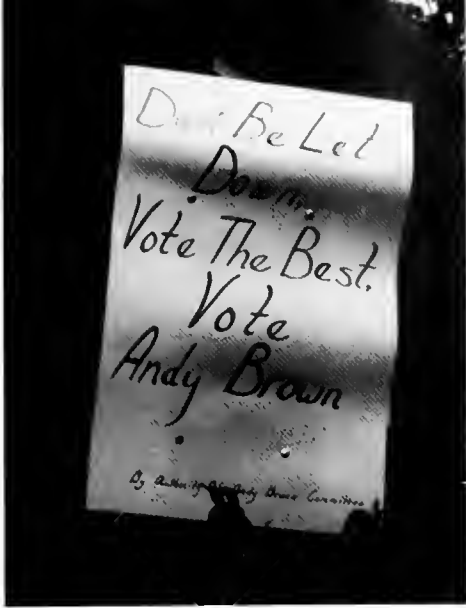 Don't Be Let
Down.
Vote The Best.
Vote
Andy Brown
By Authority Andy Brown Committee